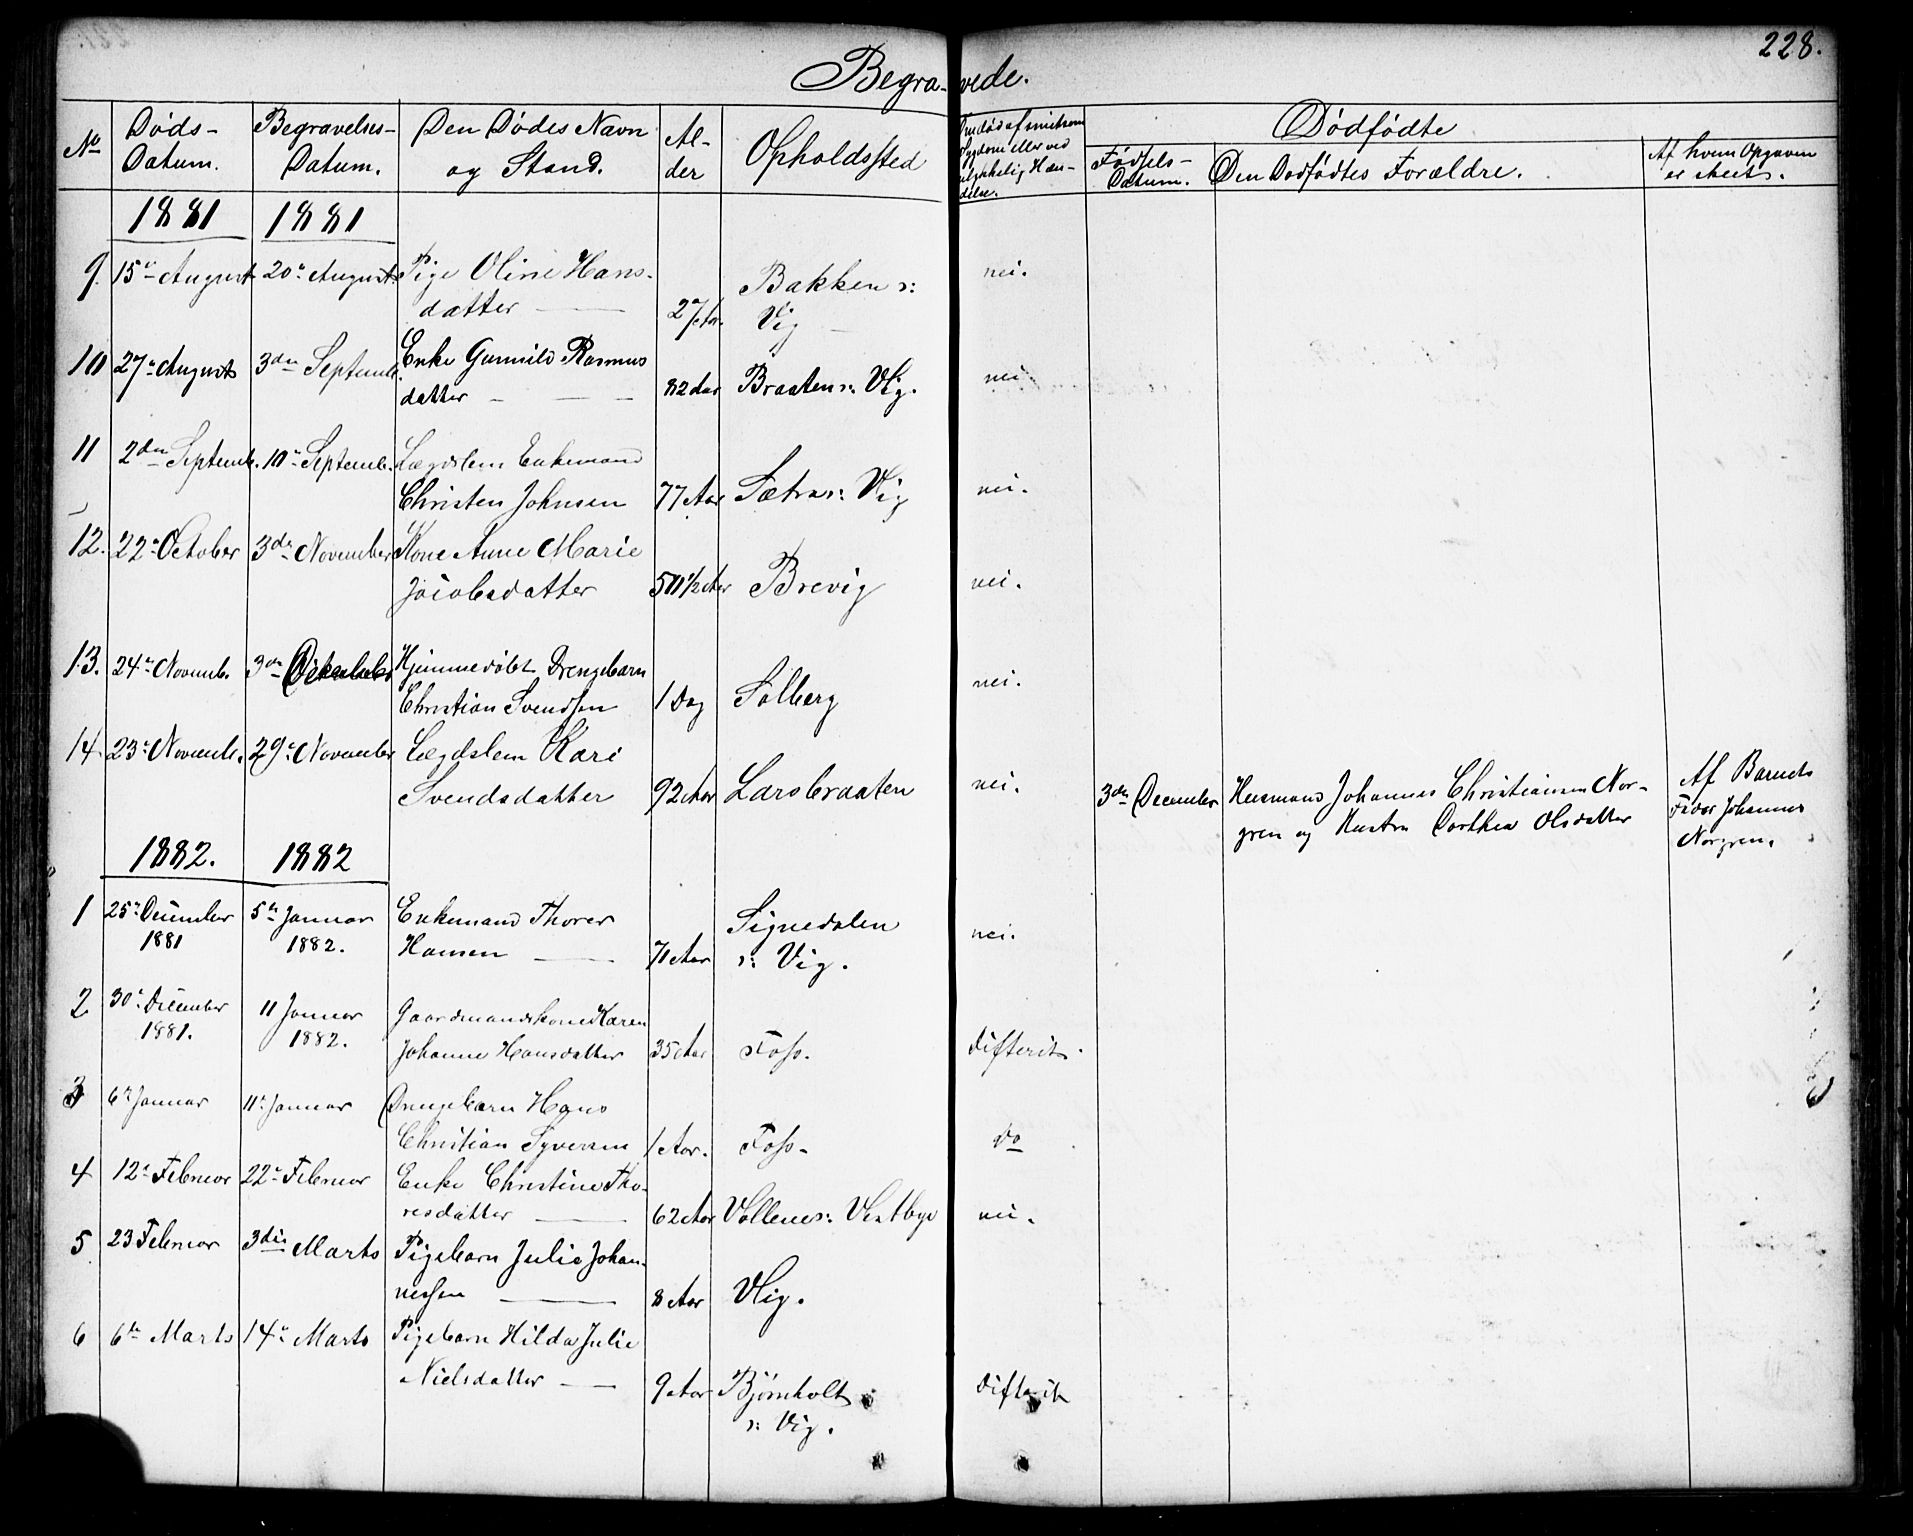 228.
Begravede.
No
Døds-
Datum.
Begravelses-
Datum.
Den Dødes Navn
og Stand.
Al-
der
Opholdssted
Om død af smitsom
Sygdom eller ved
ulykkelig Hæn-
delse.
Dødfødte
Fødsels-
Datum.
Den Dødfødtes Forældre.
Af hvem Opgaven
er skeet.
1881 1881
9. 15de August 20de August Pige Oline Hans-
datter 27 Aar. Bakken s: Vig nei.
10 27de August 3die Septemb. Enke Gunnild Rasmus
datter 82 Aar Braaten s: Vig. nei
11 2den Septemb. 10de Septemb. Lægdslem Enkemand
Christen Johnsen 77 Aar Sætra s: Vig nei.
12. 22de October 3die November Kone Anne Marie
Jacobsdatter 50 1/2 Aar Brevig nei.
13. 24de Novemb. 3die December Hjemmedøbt Drengebarn
Christian Svendsen 1 Dag Solberg nei.
14 23de Novemb. 29de November Lægdslem Kari
Svendsdatter 92 Aar Larsbraaten nei.
3die December Husmand Johannes Christiansen Nor-
gren og Hustru Dorthea Olsdatter
Af Barnets
Fader Johannes
Norgren.
1882. 1882
1 25de December 5te Januar Enkemand Thorer
1881 1882. Hansen 71 Aar Signedalen
s: Vig. nei.
2 30de December 11 Januar Gaardmandskone Karen
1881. 1882. Johanne Hansdatter 35 Aar Foss. Difterit.
3 6te Januar 11te Januar Drengebarn Hans
Christian Syversen 1 Aar. Foss. Do
4 12te Februar 22de Februar Enke Christine Tho-
resdatter 62 Aar Vollene s: Vestby nei.
5 23 Februar 3die Marts Pigebarn Julie Johan-
nessen 8 Aar Vig.
6 6te Marts 14de Marts Pigebarn Hilda Julie
Nielsdatter 9 Aar Bjørnholt
s: Vig. Difterit